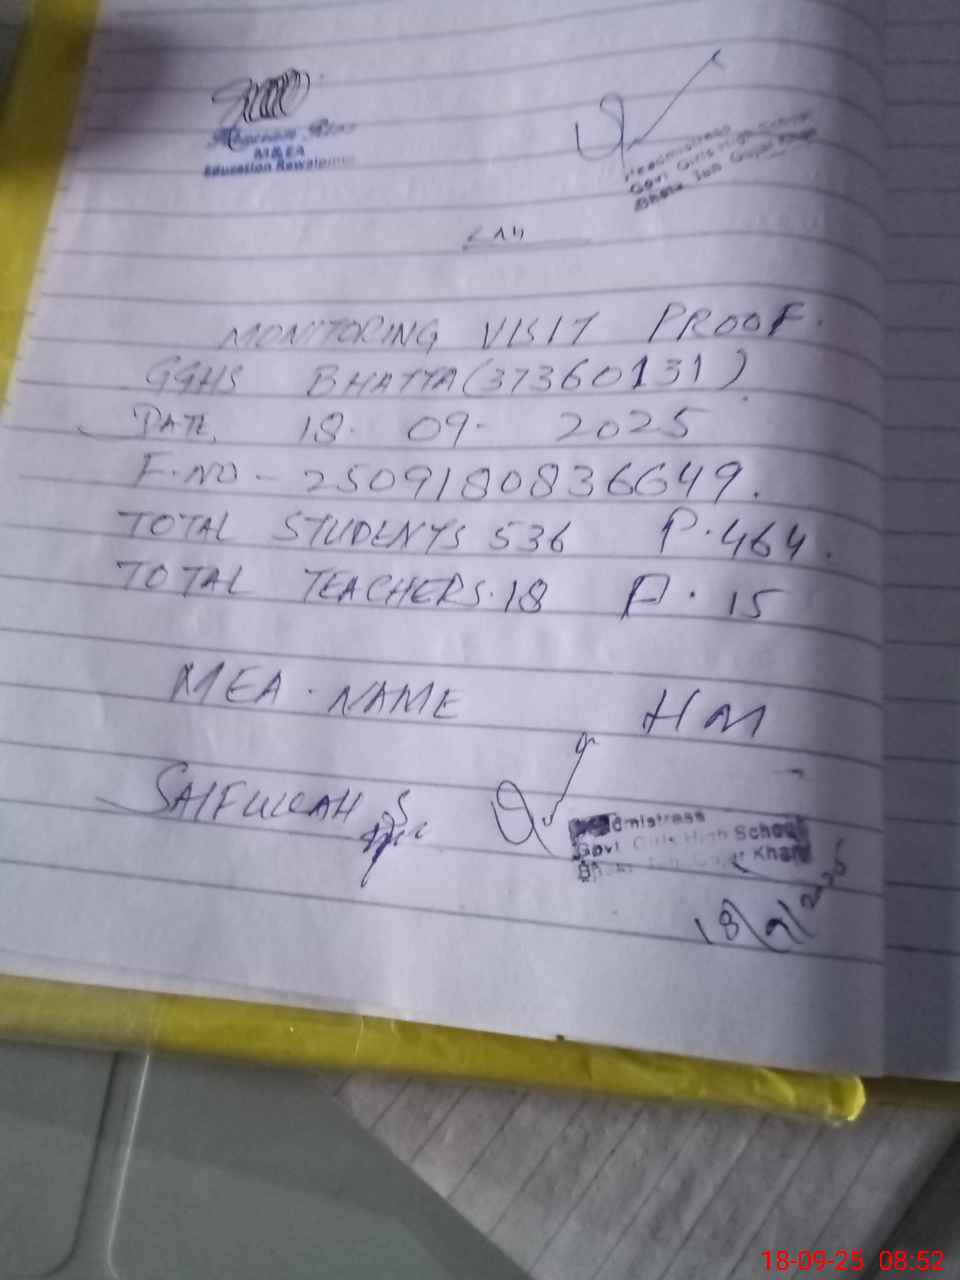 M&EA
Education Rawalpindi
Headmistress
Govt Girls High School
Bhatta Teh Gujar Khan
MONITORING VISIT PROOF.
GGHS BHATTA (37360131)
DATE, 18. 09- 2025
F.NO - 2509180836649.
TOTAL STUDENTS 536 P.464.
TOTAL TEACHERS.18 P. 15
MEA. NAME HM
SAIFULLAH
Headmistress
Govt Girls High School
Gujar Khan
18/9/2025
18-09-25 08:52